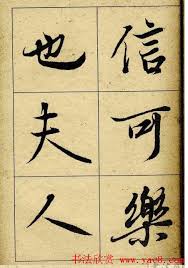 信可樂
也夫人
书法欣赏 www.yac8.com